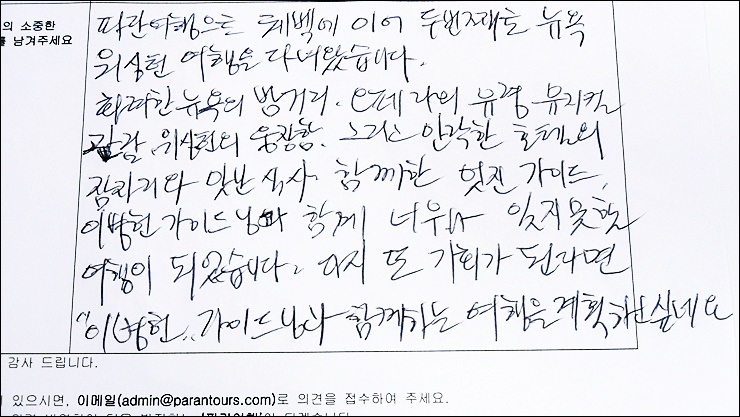 의 소중한
를 남겨주세요
파란여행으로 퀘벡에 이어 두번째로 뉴욕
워싱턴 여행을 다녀왔습니다.
화려한 뉴욕의 밤거리. 오페라의 유령 뮤지컬
관람. 워싱턴의 웅장함. 안락한 호텔의
잠자리와 맛난 식사. 함께한 멋진 가이드.
이병헌 가이드님과 함께 너무나 잊지못할
여행이 되었습니다. 다시 또 기회가 된다면
"이병헌" 가이드님과 함께하는 여행을 계획하고 싶네요
감사 드립니다.
이 있으시면, 이메일(admin@parantours.com)로 의견을 접수하여 주세요.